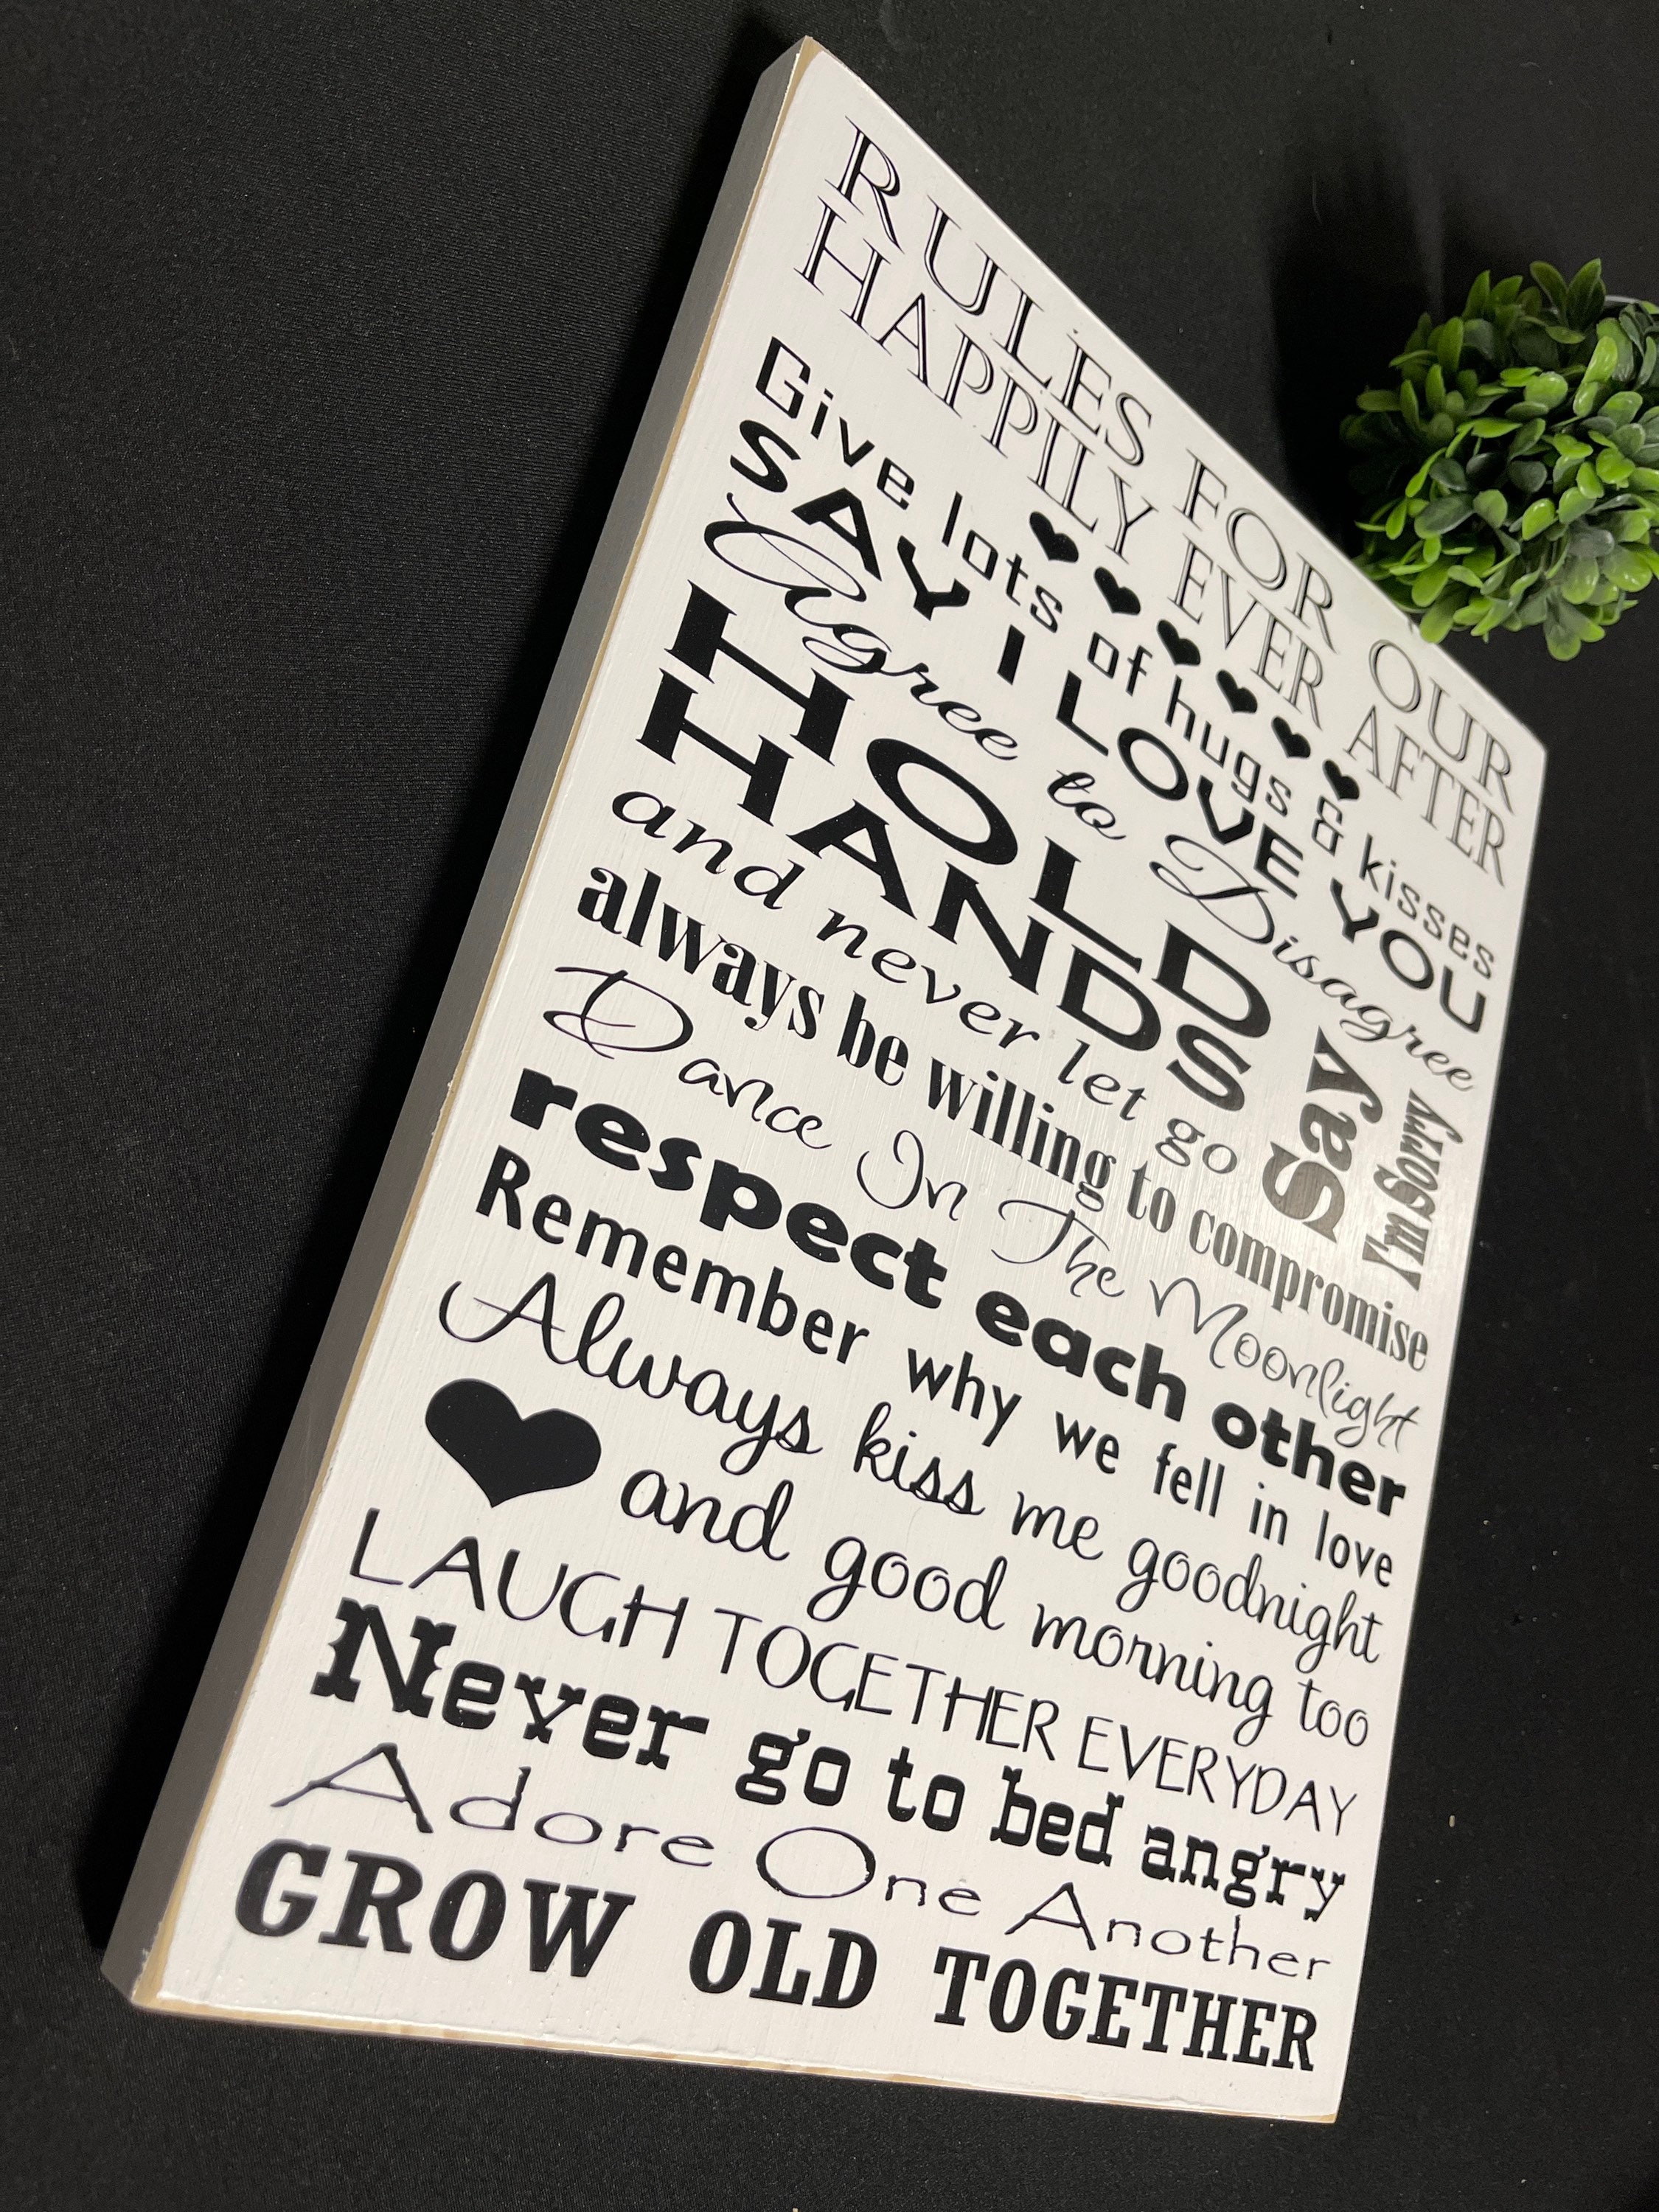 RULES FOR OUR
HAPPILY EVER AFTER
Give lots of hugs & kisses
SAY I LOVE YOU
Agree to Disagree
HOLD
HANDS
and never let go
Say
I'm Sorry
always be willing to compromise
Dance In The Moonlight
respect each other
Remember why we fell in love
Always kiss me goodnight
and good morning too
LAUGH TOGETHER EVERYDAY
Never go to bed angry
Adore One Another
GROW OLD TOGETHER